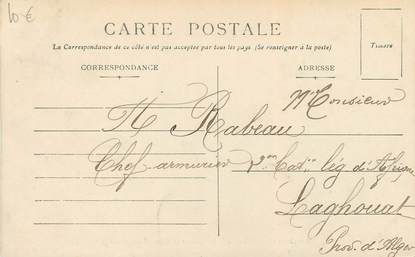 10 €
CARTE POSTALE
La Correspondance de ce côté n'est pas acceptée par tous les pays (Se renseigner à la poste)
Timbre
CORRESPONDANCE
ADRESSE
Monsieur
H Rabeau
Chef armurier 2me Bat. lég d'Afrique
Laghouat
Prov. d'Alger